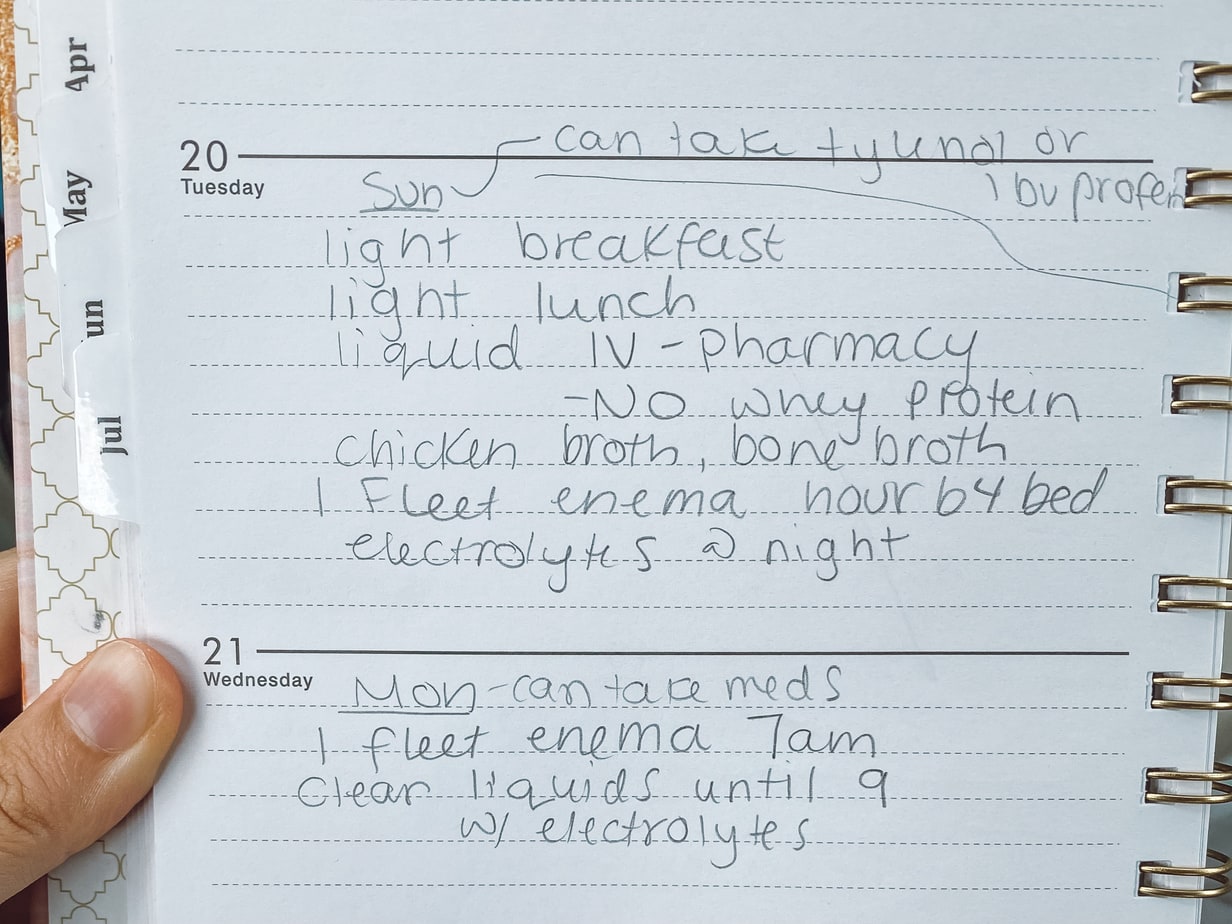 Apr
May
un
Jul
can take tylenol or
20
Tuesday
Sun
Ibuprofen
light breakfast
light lunch
liquid IV - pharmacy
- No whey protein
chicken broth, bone broth
1 Fleet enema hour b4 bed
electrolytes @ night
21
Wednesday
Mon - can take meds
1 fleet enema 7am
Clear liquids until 9
w/ electrolytes